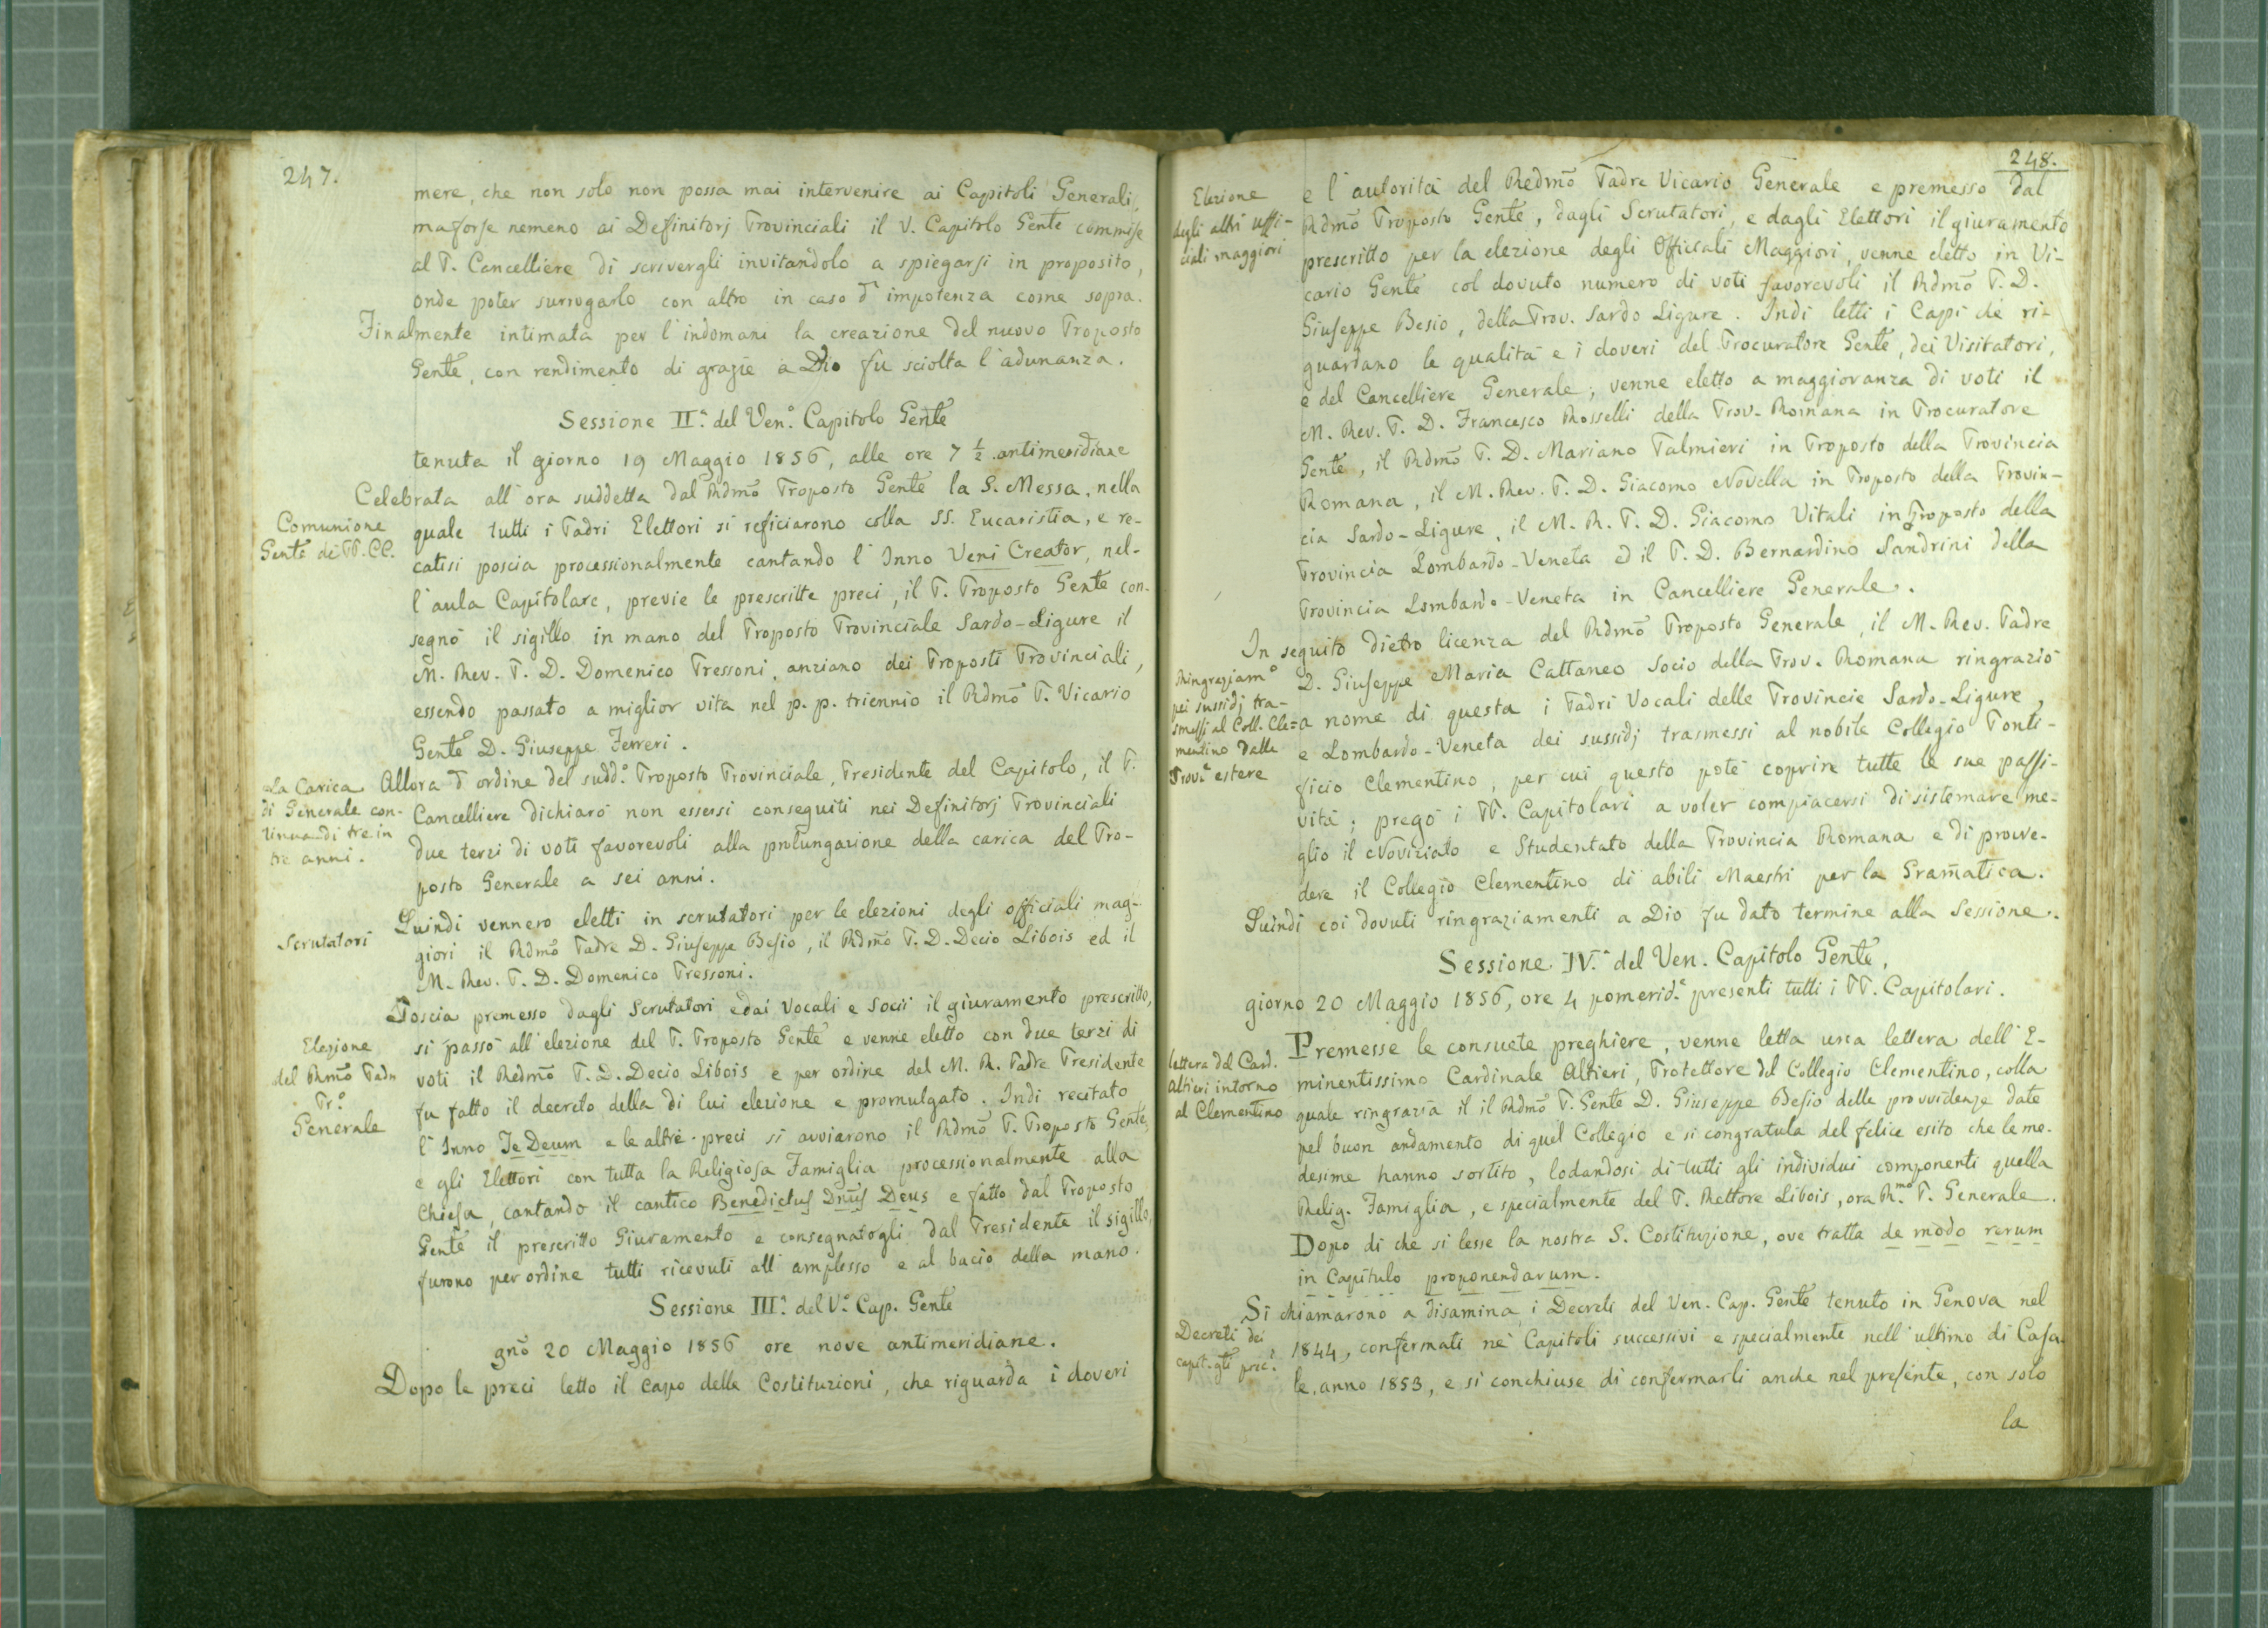 247.
mere, che non solo non possa mai intervenire ai Capitoli Generali,
ma forse nemeno ai Definitorj Provinciali il V. Capitolo Gente commise
al P. Cancelliere di scrivergli invitandolo a spiegarsi in proposito,
onde poter surrogarlo con altro in caso d'impotenza come sopra.
Finalmente intimata per l'indomani la creazione del nuovo Proposto
Gente, con rendimento di grazie a Dio fu sciolta l'adunanza.
Sessione II.a del Ven.o Capitolo Gente
tenuta il giorno 19 Maggio 1856, alle ore 7 1/2 antimeridiane
Celebrata all'ora suddetta dal Rdmo Proposto Gente la S. Messa, nella
Comunione
Gente dei PP. CC.
quale tutti i Padri Elettori si reficiarono colla SS. Eucaristia, e re-
catisi poscia processionalmente cantando l'Inno Veni Creator, nel-
l'aula Capitolare, previe le prescritte preci, il P. Proposto Gente con-
segnò il sigillo in mano del Proposto Provinciale Sardo-Ligure il
M. Rev. P. D. Domenico Pressoni, anziano dei Proposti Provinciali,
essendo passato a miglior vita nel p. p. triennio il Rdmo P. Vicario
Gente D. Giuseppe Ferreri.
La Carica
di Generale con-
tinua di tre in
tre anni.
Allora d'ordine del sudd.o Proposto Provinciale, Presidente del Capitolo, il P.
Cancelliere dichiarò non essersi conseguiti nei Definitorj Provinciali
due terzi di voti favorevoli alla prolungazione della carica del Pro-
posto Generale a sei anni.
Scrutatori
Quindi vennero eletti in scrutatori per le elezioni degli officiali mag-
giori il Rdmo Padre D. Giuseppe Besio, il Rdmo P. D. Decio Libois ed il
M. Rev. P. D. Domenico Pressoni.
Poscia premesso dagli Scrutatori e dai Vocali e Socii il giuramento prescritto,
Elezione
del Rmo Padre
Pr.o
Generale
si passò all'elezione del P. Proposto Gente e venne eletto con due terzi di
voti il Redmo P. D. Decio Libois e per ordine del M. R. Padre Presidente
fu fatto il decreto della di lui elezione e promulgato. Indi recitato
l'Inno Te Deum e le altre preci si avviarono il Rdmo P. Proposto Gente,
e gli Elettori con tutta la Religiosa Famiglia processionalmente alla
Chiesa, cantando il cantico Benedictus Dnus Deus e fatto dal Proposto
Gente il prescritto Giuramento e consegnatogli dal Presidente il sigillo,
furono per ordine tutti ricevuti all'amplesso e al bacio della mano.
Sessione III.a del V.o Cap. Gente
gno 20 Maggio 1856 ore nove antimeridiane.
Dopo le preci letto il capo delle Costituzioni, che riguarda i doveri
248.
Elezione
degli altri uffi-
ciali maggiori
e l'autorità del Redmo Padre Vicario Generale e premesso dal
Rdmo Proposto Gente, dagli Scrutatori, e dagli Elettori il giuramento
prescritto per la elezione degli Officiali Maggiori, venne eletto in Vi-
cario Gente col dovuto numero di voti favorevoli il Rdmo P. D.
Giuseppe Besio, della Prov. Sardo Ligure. Indi letti i Capi che ri-
guardano le qualità e i doveri del Procuratore Gente, dei Visitatori,
e del Cancelliere Generale, venne eletto a maggioranza di voti il
M. Rev. P. D. Francesco Rosselli della Prov. Romana in Procuratore
Gente, il Rdmo P. D. Mariano Palmieri in Proposto della Provincia
Romana, il M. Rev. P. D. Giacomo Novella in Proposto della Provin-
cia Sardo-Ligure, il M. R. P. D. Giacomo Vitali in Proposto della
Provincia Lombardo-Veneta ed il P. D. Bernardino Sandrini della
Provincia Lombardo-Veneta in Cancelliere Generale.
In seguito dietro licenza del Rdmo Proposto Generale, il M. Rev. Padre
Ringraziam.o
pei sussidj tra-
smessi al Coll. Cle=
mentino dalle
Prov.e estere
D. Giuseppe Maria Cattaneo Socio della Prov. Romana ringraziò
a nome di questa i Padri Vocali delle Provincie Sardo-Ligure,
e Lombardo-Veneta dei sussidj trasmessi al nobile Collegio Ponti-
ficio Clementino, per cui questo potè coprire tutte le sue passi-
vità; pregò i PP. Capitolari a voler compiacersi di sistemare me-
glio il Noviziato e Studentato della Provincia Romana e di provve-
dere il Collegio Clementino di abili Maestri per la Gramatica.
Quindi coi dovuti ringraziamenti a Dio fu dato termine alla Sessione.
Sessione IV.a del Ven. Capitolo Gente,
giorno 20 Maggio 1856, ore 4 pomerid.e presenti tutti i PP. Capitolari.
lettera del Card.
Altieri intorno
al Clementino
Premesse le consuete preghiere, venne letta una lettera dell'E-
minentissimo Cardinale Altieri, Protettore del Collegio Clementino, colla
quale ringrazia il il Rdmo P. Gente D. Giuseppe Besio delle provvidenze date
pel buon andamento di quel Collegio e si congratula del felice esito che le me-
desime hanno sortito, lodandosi di tutti gli individui componenti quella
Relig. Famiglia, e specialmente del P. Rettore Libois, ora R.mo P. Generale.
Dopo di che si lesse la nostra S. Costituzione, ove tratta de modo rerum
in Capitulo proponendarum.
Si chiamarono a disamina i Decreti del Ven. Cap. Gente tenuto in Genova nel
Decreti dei
capit. gli prec.i
1844, confermati ne' Capitoli successivi e specialmente nell'ultimo di Casa-
le, anno 1853, e si conchiuse di confermarli anche nel presente, con solo
la